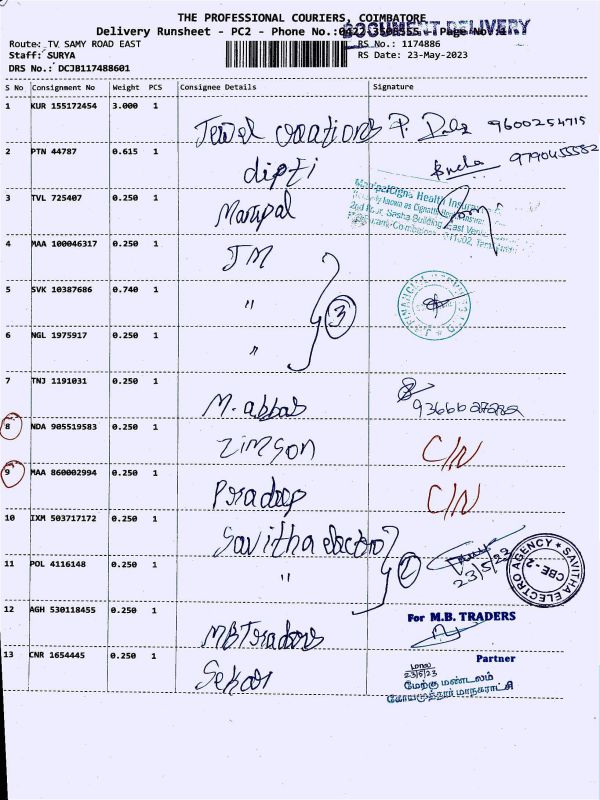 THE PROFESSIONAL COURIERS, COIMBATORE
DOCUMENT DELIVERY
Delivery Runsheet - PC2 - Phone No.:0422 Page No.:
Route: TV SAMY ROAD EAST RS No.: 1174886
Staff: SURYA RS Date: 23-May-2023
DRS No.: DCJB117488601
S No Consignment No Weight PCS Consignee Details Signature
1 KUR 155172454 3.000 1 Jewel creations 9600254715
2 PTN 44787 0.615 1 dipti 9790455582
3 TVL 725407 0.250 1 Manipal
ManipalCigna Health Insurance
4 MAA 100046317 0.250 1 JM
5 SVK 10387686 0.740 1 "
3
6 NGL 1975917 0.250 1 "
7 TNJ 1191031 0.250 1 M. abbas
8 NDA 905519583 0.250 1 Zimson C/N
9 MAA 860002994 0.250 1 Pradeep C/N
10 IXM 503717172 0.250 1 Savitha electro
23/5/23
SAVITHA ELECTRO AGENCY
CBE-2
11 POL 4116148 0.250 1 "
2
12 AGH 530118455 0.250 1 MB Traders
For M.B. TRADERS
Partner
13 CNR 1654445 0.250 1 Sekar
23/5/23
மேற்கு மண்டலம்
கோயமுத்தூர் மாநகராட்சி